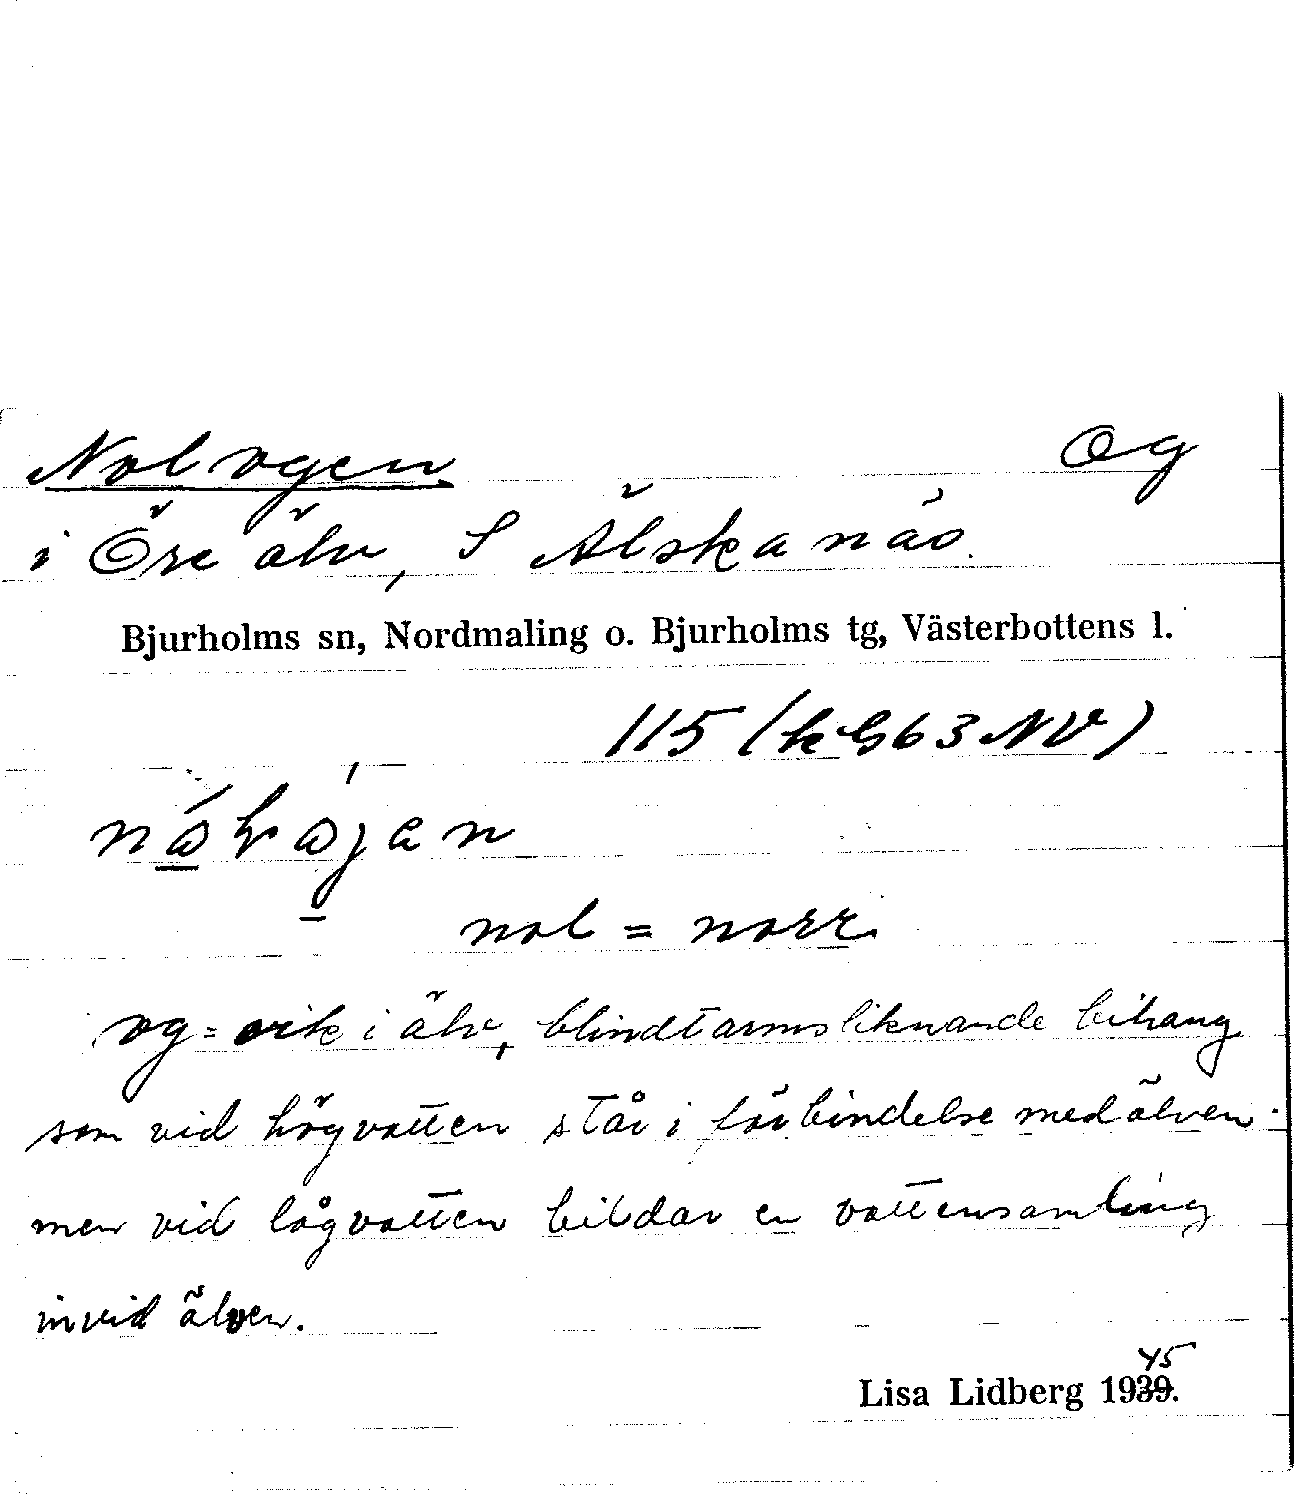 Nologen Og
i Öre älv, S Älskanäs.
Bjurholms sn, Nordmaling o. Bjurholms tg, Västerbottens l.
115 (kG63NV)
nol = norr.
og = vik i älv, blindtarmsliknande bihang
som vid högvatten står i förbindelse med älven
men vid lågvatten bildar en vattensamling
invid älven.
45
Lisa Lidberg 1939.